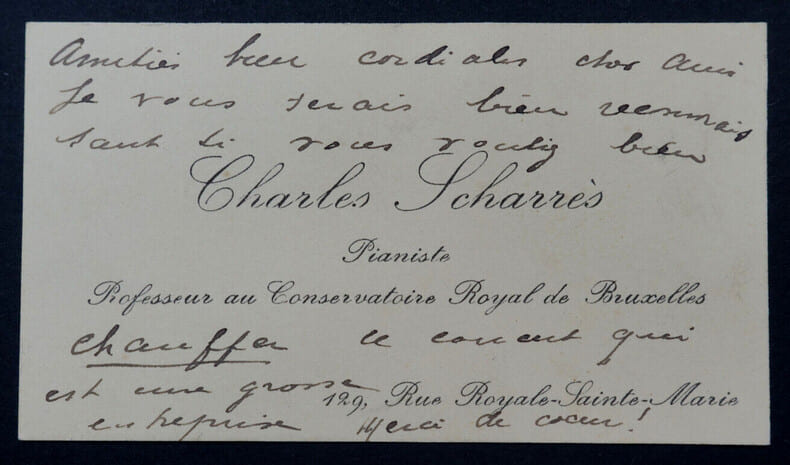 Amitiés bien cordiales cher Ami
Je vous serais bien reconnais
sant si vous vouliez bien
Charles Scharrès
Pianiste
Professeur au Conservatoire Royal de Bruxelles
chauffer le concert qui
est une grosse
129, Rue Royale-Sainte-Marie
entreprise Merci de cœur!